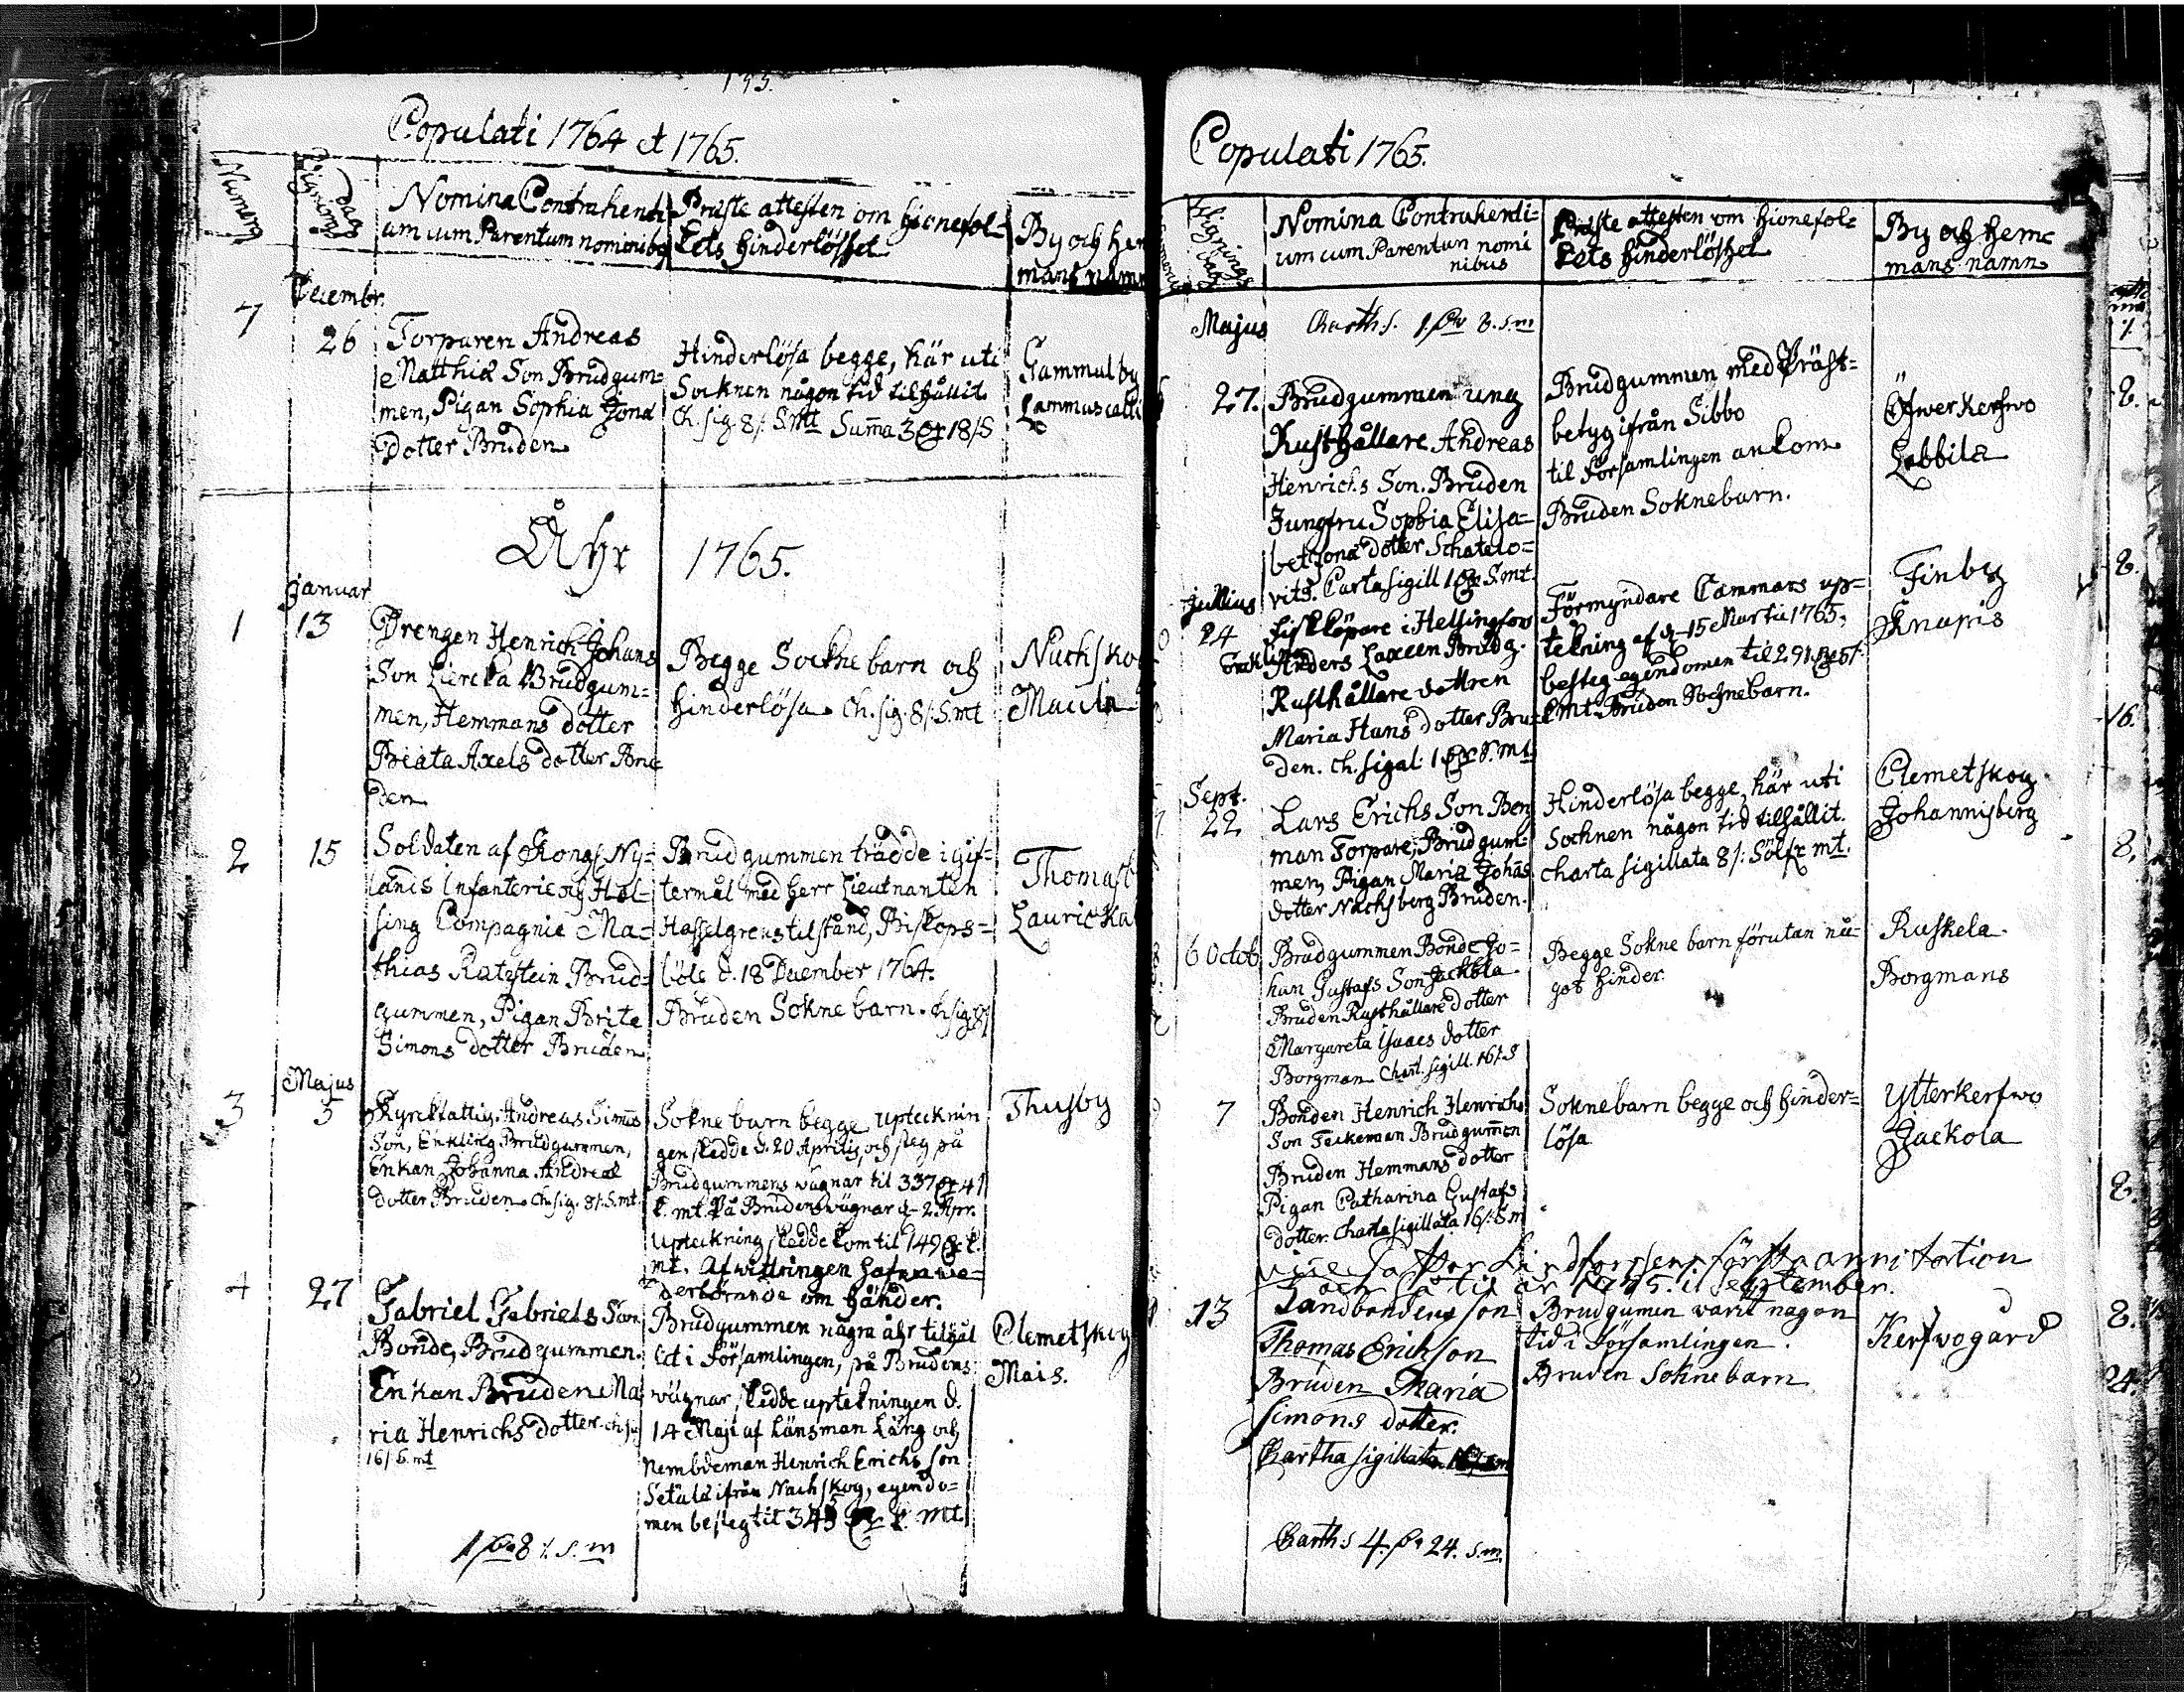 Copulati 1764 et 1765.
Numerq
Vignings
dag
Nomina Contrahenti
um cum Parentum nominibq
Præste attesten om hionefol=
kets hinderlöshet
By och hem
mans namn
Decembr.
7
26
Torparen Andreas
Matthiæ Son Brudgum=
men, Pigan Sophia Jonæ
Dotter Bruden
Hinderlösa begge, här uti
Socknen någon tid tilhållit.
Ch. sig. 8/: S.Mt
Gammulby
Åhr 1765.
Januar
1
13
Drengen Henrich Johans
Son Liercka Brudgum=
men, Hemmans dotter
Beata Axels dotter Bru=
den
Begge Sockne barn och
hinderlösa. Ch. sig. 8/: S.mt
Nachskog
2
15
Soldaten af Kongs Ny=
lands Infanterie och Hel=
sing Compagnie Ma=
thias Ratstein Brud=
gummen, Pigan Brita
Simons dotter Bruden
Brudgummen trädde i gif=
termål med herr Lieutnanten
Hasselgrens tilstånd, Biskops=
böle d. 18 December 1764.
Bruden Sokne barn.
Thomasb
Lauricka
Majus
3
5
Kyrckfattig Andreas Simons
Son, Enkling Brudgummen,
Enkan Johanna Andreæ
dotter Bruden. Ch. sig. 8/: S.mt
Sokne barn begge uptecknin
gen skedde d. 20 Aprilis, och steg på
Brudgummens wägnar til 337
k. mt. På Brudens wägnar d. 2. Apr.
upteckning skedde kom til 149
mt. Afwittringen hafwa we=
derbörande om händer.
Thusby
4
27
Gabriel Gabriels Son
Bonde, Brudgummen.
Enkan Bruden Ma
ria Henrichs dotter. ch. sig
16/ S. mt
Brudgummen några åhr tilhål
lit i församlingen, på Brudens
wägnar skedde uptekningen d.
14 Maji af Länsman Läng och
Nembdeman Henrich Erichs son
Setälä ifrån Nachskog, egendo=
men besteg til
Clemetskog
Mais.
Copulati 1765.
Vignings
dag
Nomina Contrahenti=
um cum Parentum nomi
nibus
Præste attesten om hionefolc
kets hinderlöshet
By och hem=
mans namn
Majus
27.
Brudgummen ung
Rusthållare Andreas
Henrichs Son. Bruden
Jungfru Sophia Elisa=
bet Jonæ dotter Schatelo=
vits. Carta sigill 1 S.mt.
Brudgummen med Präst=
betyg ifrån Sibbo
til församlingen ankom
Bruden Soknebarn.
Öfwerkerfwo
Labbila
Julius
24
fiskköpare i Helsingfors
Enkling Anders Laxeen Brudg.
Rusthållare dottren
Maria Hans dotter Bru=
den. ch. sigal: 1 S. mt
Förmyndare Cammars up=
tekning af d. 15 Martii 1765,
besteg egendomen til
mt. Bruden Soknebarn.
Finby
Knapis
Sept.
22
Lars Erichs Son Berg
man Torpare, Brudgum=
men, Pigan Maria Johans
dotter Nachsberg Bruden.
Hinderlösa begge, här uti
Sochnen någon tid tilhållit.
charta sigillata 8/: Sölfr mt.
Clemetskog
Johannisberg
6 Octob
Brudgummen Bonde Jo=
han Gustafs Son Jackola
Bruden Rusthållare dotter
Margareta Isaacs dotter
Borgman Chart. sigill. 16/: S
Begge Sokne barn förutan nå=
got hinder.
Ruskela
Borgmans
7
Bonden Henrich Henrichs
Son Teikeman Brudgummen
Bruden Hemmans dotter
Pigan Catharina Gustafs
dotter. Charta sigillata 16/: S.m
Soknebarn begge och hinder=
lösa
Ytterkerfwo
Jackola
13
Landbondens son
Thomas Erichson
Bruden Maria
Simons dotter.
Chartha sigillata
Brudgumen varit nagon
tid i församlingen.
Bruden soknebarn
Kerfwogård